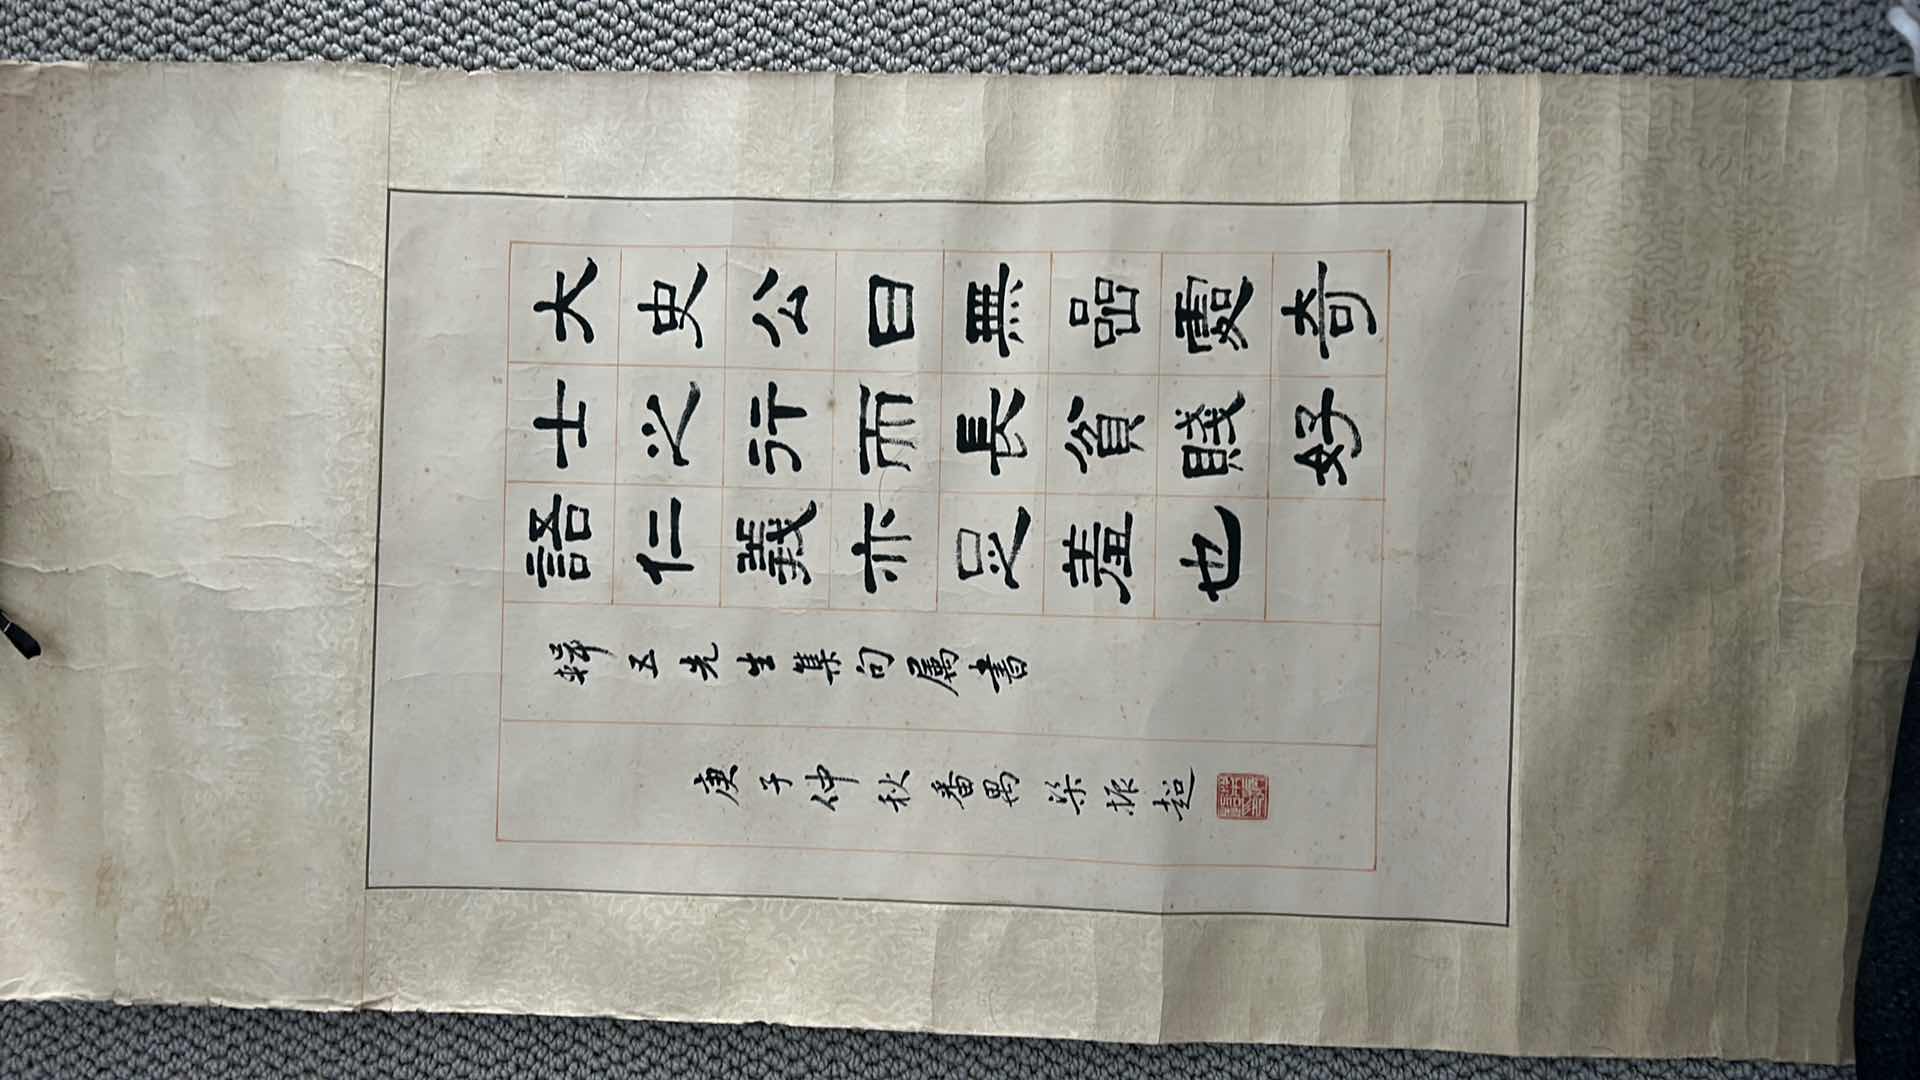 大史公曰無嵒處奇
士之行而長貧賤好
語仁義亦足羞也
輯五先生集句屬書
庚子仲秋番禺梁振超